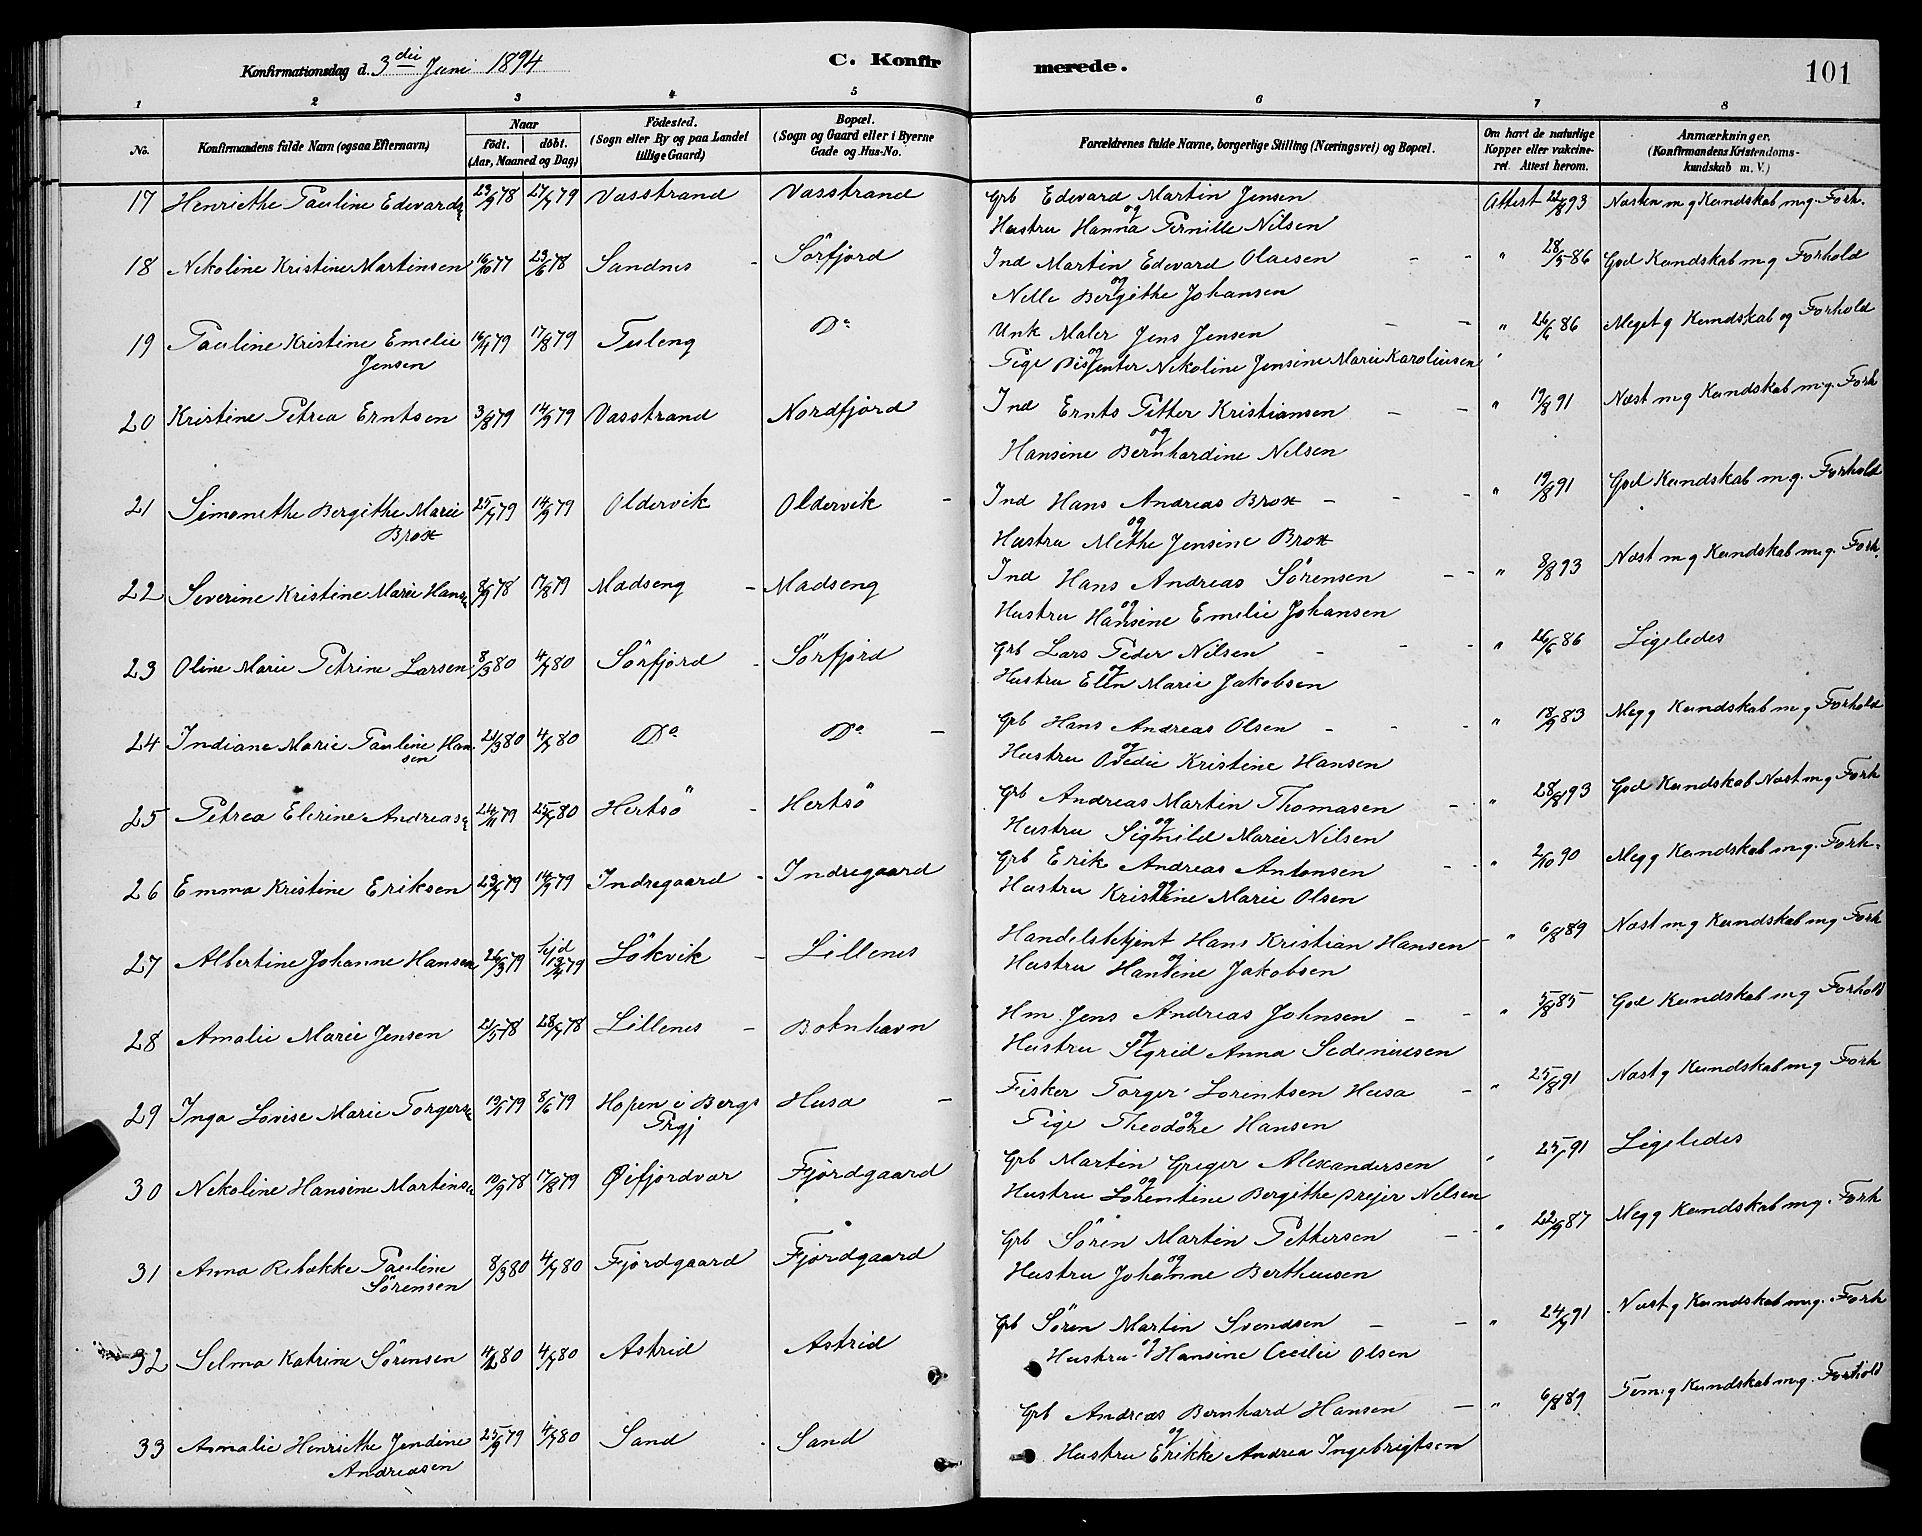 Konfirmationsdag d. 3die Juni 1894 C. Konfirmerede. 101
1 2 3 4 5 6 7 8
No. Konfirmandens fulde Navn (ogsaa Efternavn) Naar født. døbt. (Aar, Maaned og Dag) Fødested. (Sogn eller By og paa Landet tillige Gaard) Bopæl. (Sogn og Gaard eller i Byerne Gade og Hus-No. Forældrenes fulde Navne, borgerlige Stilling (Næringsvei) og Bopæl. Om havt de naturlige Kopper eller vakcineret. Attest herom. Anmærkninger. (Konfirmandens Kristendomskundskab m. V.)
17 Henriethe Pauline Edvards 23/9 78 27/7 79 Vasstrand Vasstrand Grb Edevard Martin Jensen Attest 22/8 93 Næsten m g Kundskab m.g. Forh.
og Hustru Hanna Pernille Nilsen
18 Nekoline Kristine Martinsen 16/10 77 23/6 78 Sandnes - Sörfjord Ind Martin Edevard Olaisen - - " 28/5 86 God Kundskab m g Forhold
og Nelle Bergithe Johansen
19 Pauline Kristine Emelie Jensen 16/4 79 17/8 79 Tuleng Do Unk Maler Jens Jensen - - " 26/6 86 Meget g Kundskab og Forhold
og Pige Disenter Nekoline Jensine Marie Karoliusen
20 Kristine Petrea Erntsen 3/8 79 14/9 79 Vasstrand Nordfjord Ind Ernts Petter Kristiansen - - " 19/8 91 Næst m g Kundskab m.g. Forh
og Hansine Bernhardine Nilsen
21 Simonethe Bergithe Marie Brox 25/7 79 14/9 79 Oldervik Oldervik - Ind Hans Andreas Brox - - - " 19/8 91 God Kundskab m.g. Forhold
og Hustru Methe Jensine Brox
22 Severine Kristine Marie Hans 8/9 78 17/8 79 Madseng - Madseng Ind Hans Andreas Sörensen - - " 8/8 93 Næst m g Kundskab m.g. Forh.
og Hustru Hansine Emelie Johansen
23 Oline Marie Petrine Larsen 8/3 80 4/7 80 Sörfjord - Sörfjord Grb Lars Peder Nilsen - - - " 26/6 86 Ligeledes
og Hustru Elen Marie Jakobsen
24 Indiane Marie Pauline Hansen 21/3 80 4/7 80 Do Do - Grb Hans Andreas Olsen - - - " 18/9 83 Meg g Kundskab m g Forhold
og Hustru Ovedie Kristine Hansen
25 Petrea Elerine Andreas 24/11 79 25/7 80 Hertsö - Hertsö Grb Andreas Martin Thomasen - - " 28/8 93 God Kundskab Næst m g Forh
og Hustru Signild Marie Nilsen
26 Emma Kristine Eriksen 23/7 79 14/9 79 Indregaard - Indregaard Grb Erik Andreas Antonsen - - " 2/10 90 Meg g Kundskab m.g. Forh.
og Hustru Kristine Marie Olsen
27 Albertine Johanne Hansen 26/3 79 hjd 13/4 79 Lökvik - Lillenes Handelsbetjent Hans Kristian Hansen - " 6/8 89 Næst m g Kundskab m g Forh
og Hustru Hansine Jakobsen
28 Amalie Marie Jensen 21/5 78 28/7 78 Lillenes - Botnhavn Hm. Jens Andreas Johnsen - - " 5/8 85 God Kundskab m g Forhold
og Hustru Sigrid Anna Sedeniusen
29 Inga Lovise Marie Torgers 19/1 79 8/6 79 Hopen i Bergs Prgj Husa - Fisker Torger Lorentsen Husa - " 25/8 91 Næst g Kundskab m g Forh
og Pige Theodore Hansen
30 Nekoline Hansine Martins 10/9 78 17/8 79 Øifjordvær Fjordgaard Grb Martin Greger Alexandersen " 25/ 91 Ligeledes
og Hustru Lorentine Bergithe Prejer Nilsen
31 Anna Rebekke Pauline Sörensen 8/3 80 4/7 80 Fjordgaard Fjordgaard Grb Sören Martin Pettersen - - " 22/9 87 Meg g Kundskab m.g. Forh
og Hustru Johanne Berthusen
32 Selma Katrine Sörensen 4/2 80 4/7 80 Astrid Astrid Grb Sören Martin Svendsen - - " 24/9 91 Næst g Kundskab m.g. Forh
Hustru og Hansine Cecilie Olsen
33 Amalie Henriethe Jendine Andreasen 25/9 79 4/7 80 Sand - Sand Grb Andreas Bernhard Hansen - " 6/8 89 Tem. g Kundskab m.g. Forhold
og Hustru Erikke Andrea Ingebrigtsen